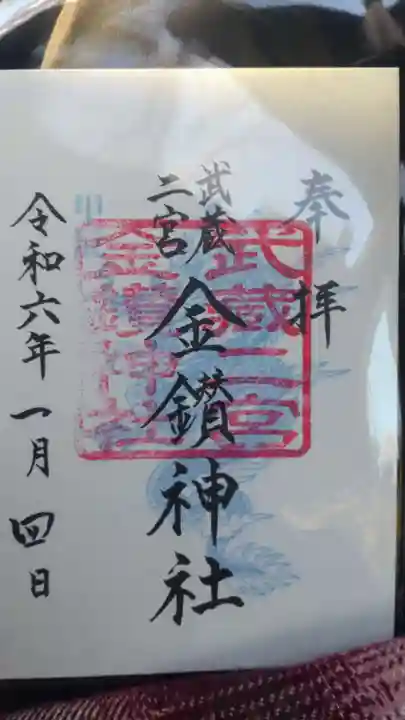 奉拝
武蔵
二宮
金鑚神社
令和六年一月四日
武蔵二宮
金鑚神社